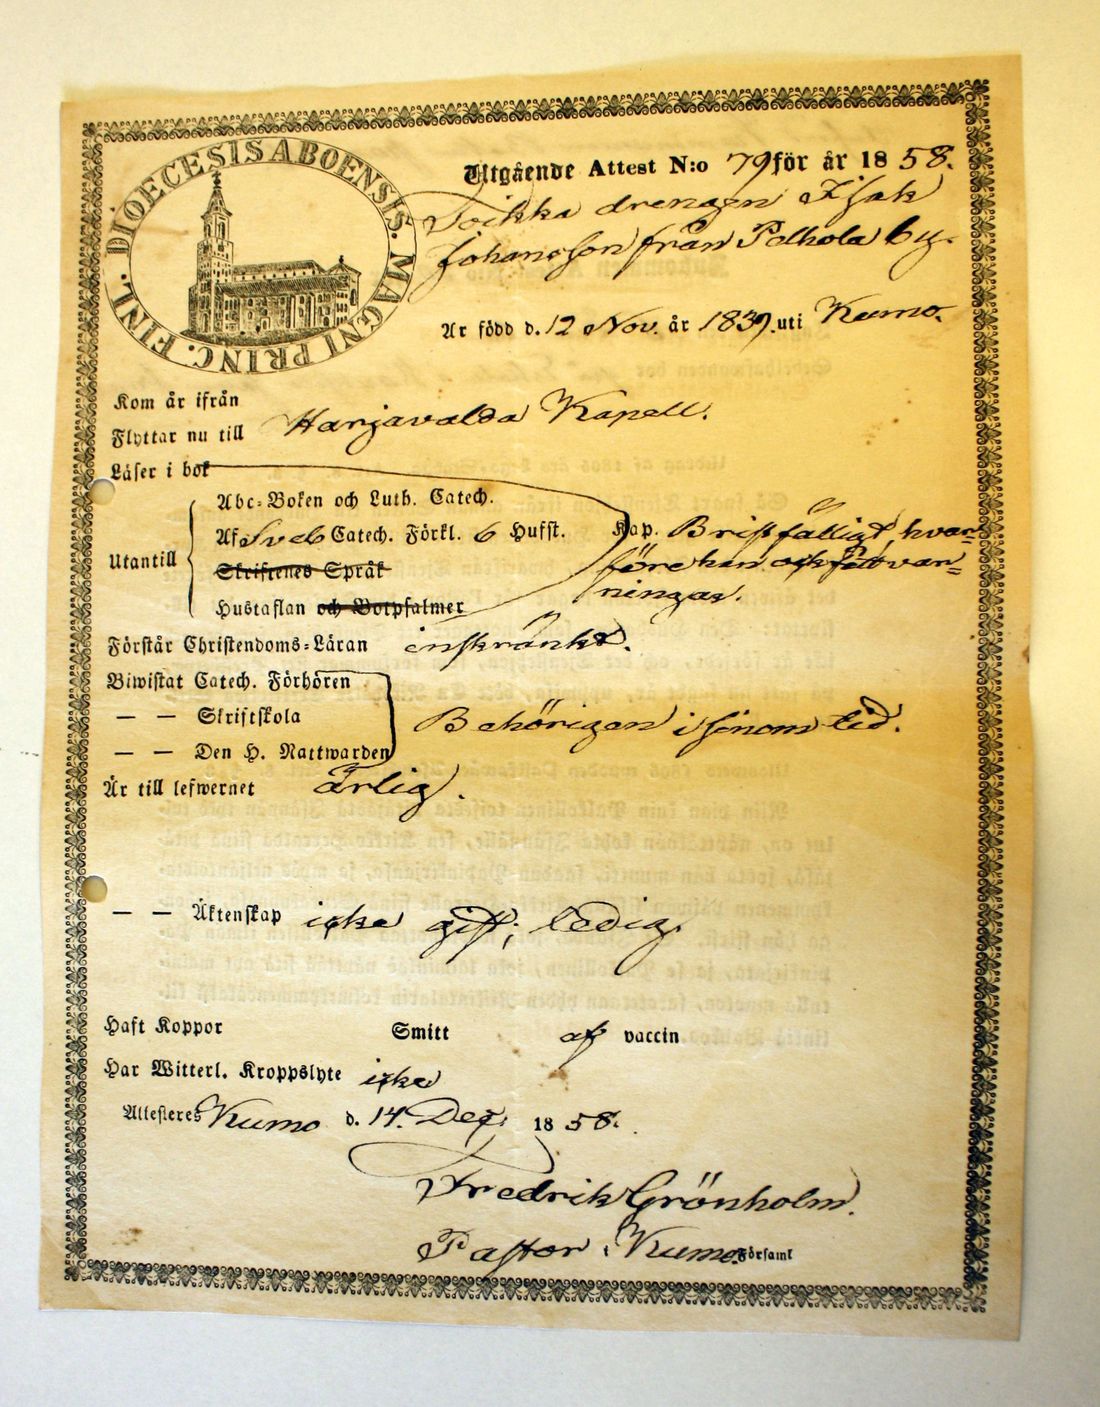 DIOECESIS ABOENSIS. MAGNI PRINC. FINL.
Utgående Attest N:o 79 för år 1858.
drengen Isak
Johansson från Pelhola by.
Är född d. 12 Nov. år 1839. uti Kumo.
Kom år ifrån
Flyttar nu till Harjavalda Kapell.
Läser i bok
Abc-Boken och Luth. Catech.
Utantill Af Sveb Catech. Förkl. 6 Hufst. Kap. Bristfälligt, hvar-
Skriftenes Språk före han ock fått var-
Hustaflan och Botpsalmer ningar.
Förstår Christendoms-Läran inskränkt.
Biwistat Catech. Förhören
— — Skriftskola Behörigen i sinom tid.
— — Den H. Nattwarden
Är till lefwernet Ärlig.
— — Äktenskap icke gift; ledig.
Haft Koppor Smitt af vaccin
Har Witterl. Kroppslyte icke
Attesteres Kumo d. 14. Dec. 1858.
Fredrik Grönholm.
Pastor i Kumo Församl